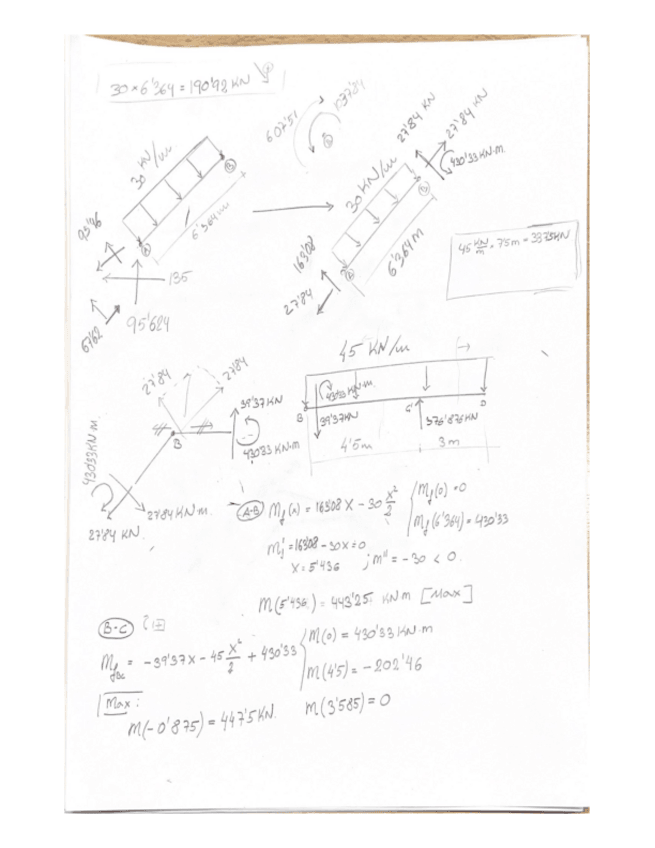 30 × 6'364 = 190'92 KN
607'51
30 KN/m
B
6'364 m
A
135
95'624
67'62
27'84 KN
27'84 KN
430'33 KN·m.
30 KN/m
B
6'364 m
163'08
A
27'84
45 KN/m · 7'5m = 337'5 KN
27'84
27'84
39'37 KN
B
430'33 KN·m
430'33 KN·m
27'84 KN·m.
27'84 KN.
45 KN/m
430'33 KN·m.
B
39'37KN
C
D
376'876KN
4'5m
3 m
A-B Mf(x) = 163'08 X - 30 X²/2 { Mf(0) = 0
Mf(6'364) = 430'33
Mf' = 163'08 - 30X = 0
X = 5'436 ; M'' = -30 < 0.
M(5'436) = 443'25 KNm [Max]
B-C
MfBC = -39'37X - 45 X²/2 + 430'33 { M(0) = 430'33 KN·m
M(4'5) = -202'46
Max:
M(-0'875) = 447'5 KN. M(3'585) = 0